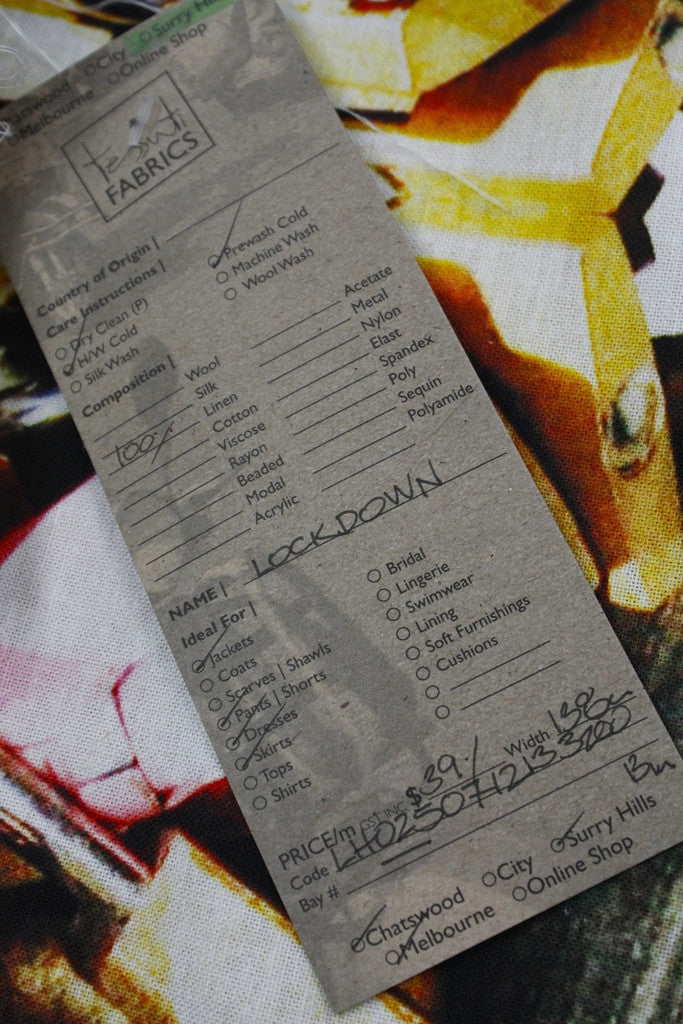 City Surry Hills
Chatswood Online Shop
Melbourne
tessuti
FABRICS
Country of Origin |
Care Instructions |
Dry Clean (P) Prewash Cold
H/W Cold Machine Wash
Silk Wash Wool Wash
Composition |
Wool Acetate
Silk Metal
100% Linen Nylon
Cotton Elast
Viscose Spandex
Rayon Poly
Beaded Sequin
Modal Polyamide
Acrylic
NAME | LOCKDOWN
Ideal For |
Jackets Bridal
Coats Lingerie
Scarves | Shawls Swimwear
Pants | Shorts Lining
Dresses Soft Furnishings
Skirts Cushions
Tops
Shirts
PRICE/m GST INC $39./ Width 138cm
Code LH02507121333200
Bay # 13m
Chatswood City Surry Hills
Melbourne Online Shop